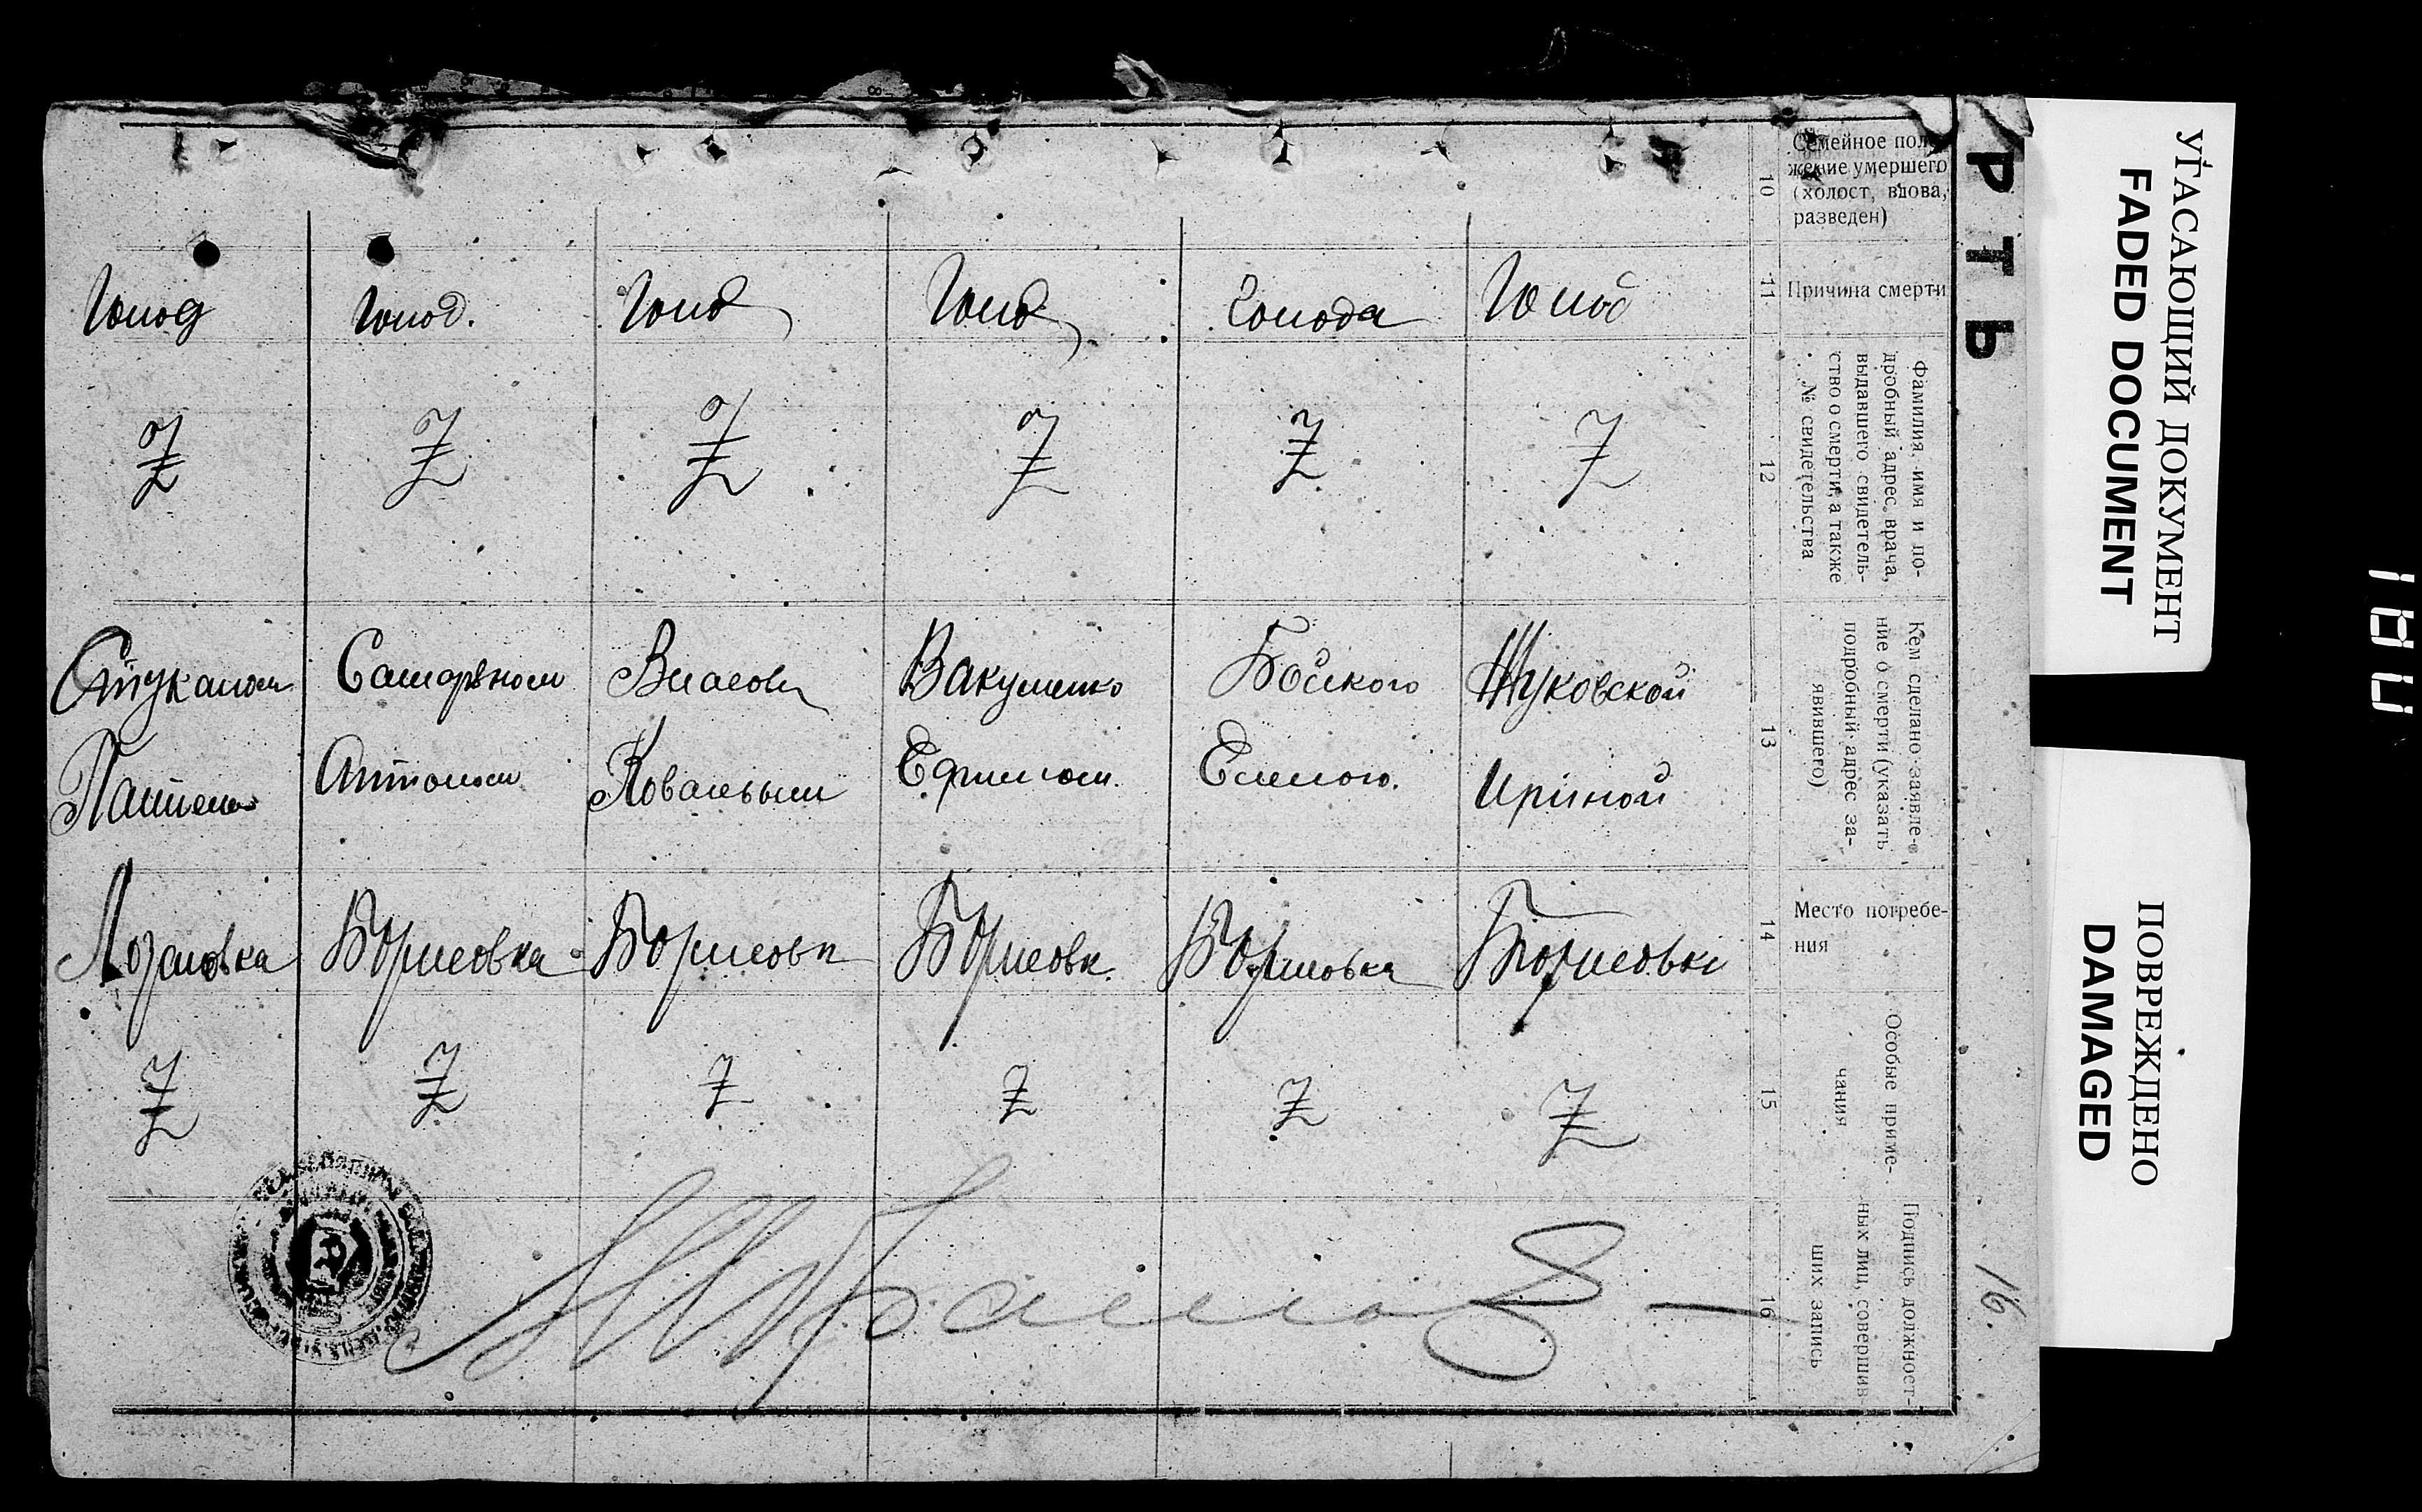 РТЬ
Семейное поло-
жение умершего
(холост, вдова,
разведен)
10
Причина смерти
11
Фамилия, имя и по-
дробный адрес врача,
выдавшего свидетель-
ство о смерти, а также
№ свидетельства
12
Кем сделано заявле-
ние о смерти (указать
подробный адрес за-
явившего)
13
Место погребе-
ния
14
Особые приме-
чания
15
Подпись должност-
ных лиц, совершив-
ших запись
16
Голод
Голод.
Голод
Голод
Голода
Голод
Z
Z
Z
Z
Z
Z
Стукалом
Власом
Ковалевым
Антоном
Вакуленко
Ефимом.
Бойкого
Жуковской
Ириной
Лозановка
Борисовка
Борисовк
Борисовк.
Борисовка
Борисовке
Z
Z
Z
Z
Z
Z
16.
УГАСАЮЩИЙ ДОКУМЕНТ
FADED DOCUMENT
ПОВРЕЖДЕНО
DAMAGED